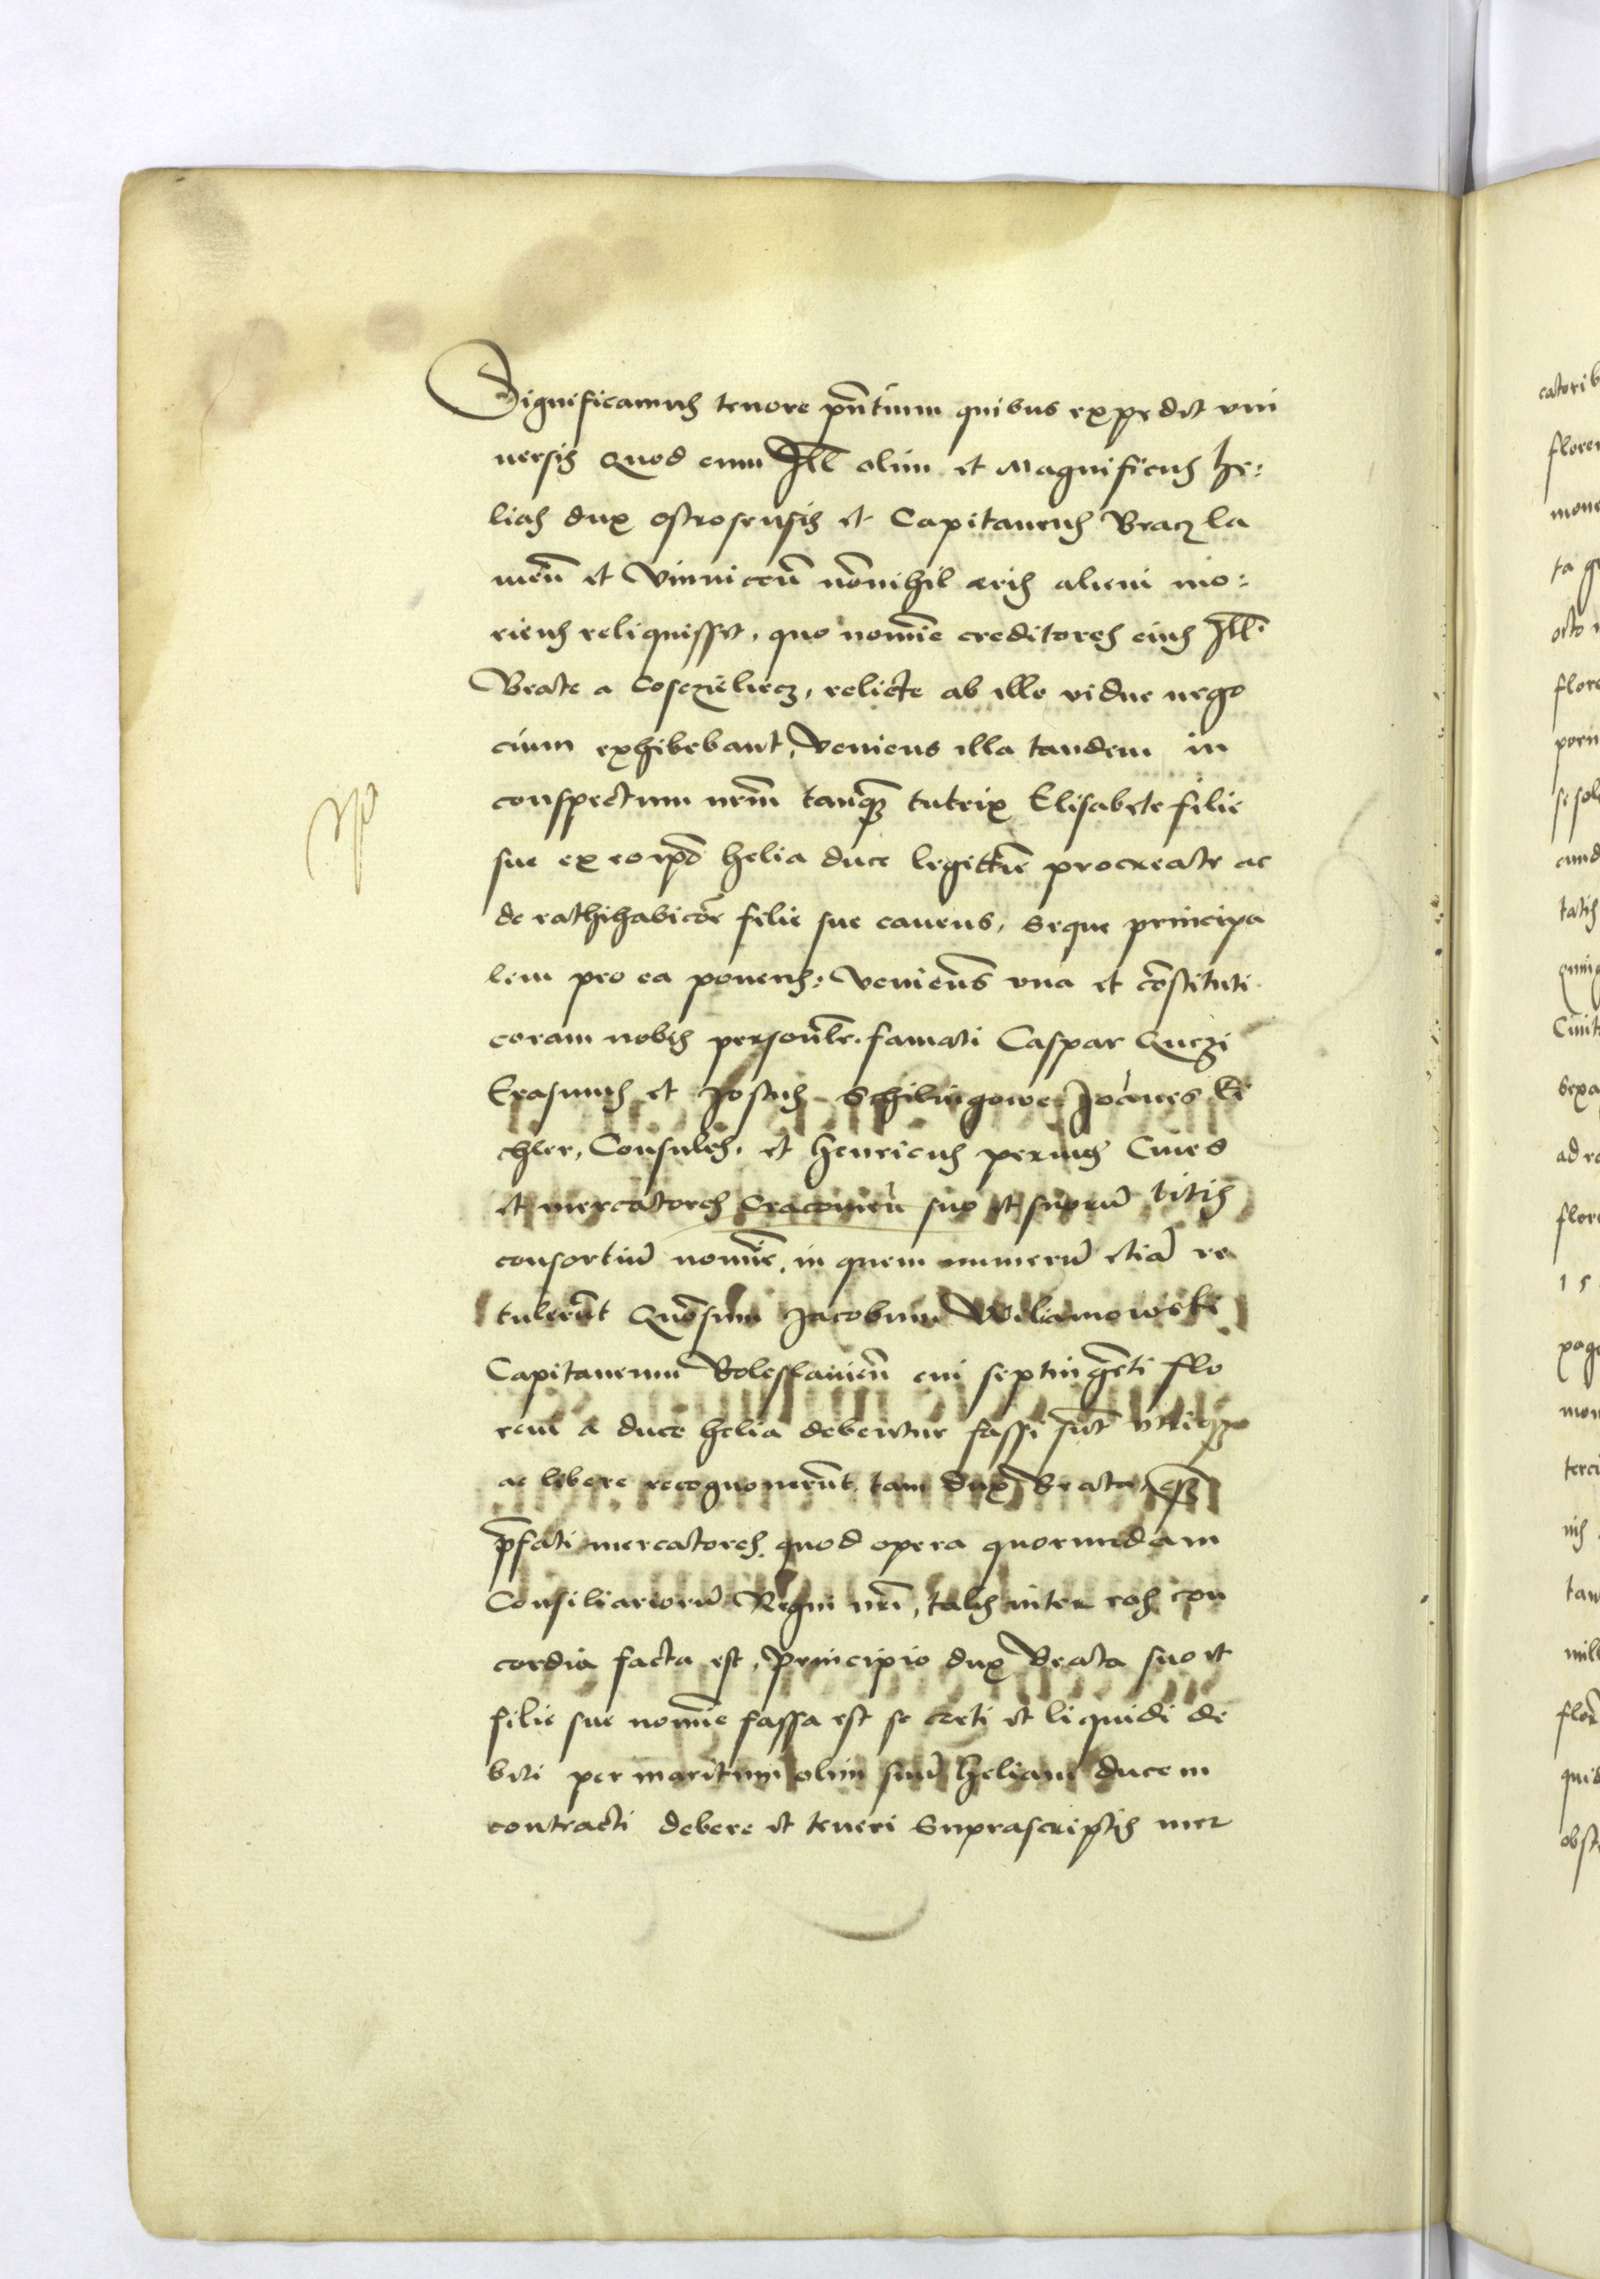 Significamus tenore pñtium quibus expedit vni
uersis Quod cum Ill olim et Magnificus He:
lias dux ostrosensis et Capitaneus Braczla
uieñ et Vinniceñ nonnihil aeris alieni mo:
riens reliquisset, quo nomīe creditores eius Ill.
Beate a Cosczielecz, relicte ab illo vidue nego
cium exhibebant, veniens illa tandem in
conspectum nrm̄ tanq̃ tutrix Elisabete filie
sue ex eo ip̄o Helia duce legittīe procreate ac
de rathihabicōe filie sue cauens, seque principa
lem pro ea ponens, Venieñs vna et cōstituti
coram nobis persoñlr. famati Caspar Guczi
Erasmus et Jostus Schilingowe Joānes Ei
chler, Consules, et Henricus perus Ciues
et mercatores Cracouieñ suo et suorū litis
consortiū nomīe, in quem numerū etiā re
tulerūt Gñosum Jacobum Wilamowski
Capitaneum Boleslauieñ cui septingēti flo
reni a duce Helia debentur fassi sūt vtriq̃
ac libere recognouerūt, tam dux Beata, q̃
p̄fati mercatores, quod opera quorundam
Consiliariorū Regni nr̄i, talis inter eos con
cordia facta est, Principio dux Beata suo et
filie sue nomīe fassa est se certi et liquidi de
biti per maritum olim suū Heliam ducem
contracti debere et teneri Suprascriptis mer